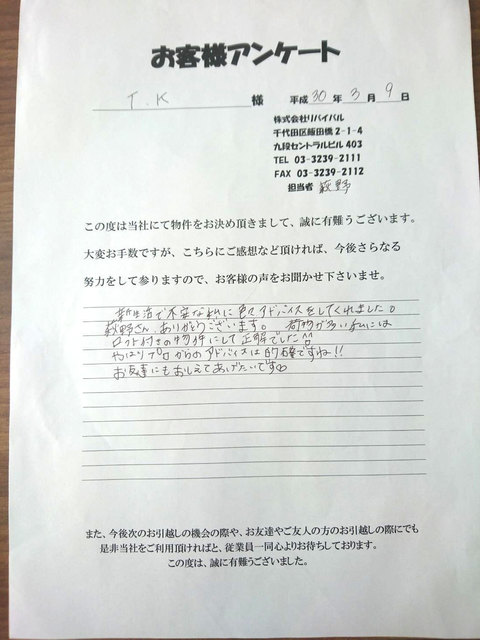 お客様アンケート
T.K 様 平成30年3月9日
株式会社リバイバル
千代田区飯田橋2-1-4
九段セントラルビル403
TEL 03-3239-2111
FAX 03-3239-2112
担当者 荻野
この度は当社にて物件をお決め頂きまして、誠に有難うございます。
大変お手数ですが、こちらにご感想など頂ければ、今後さらなる
努力をして参りますので、お客様の声をお聞かせ下さいませ。
新生活で不安な私に色々アドバイスをしてくれました。
荻野さん、ありがとうございます。 荷物が多い私には
ロフト付きの物件にして正解でした^^
やはりプロからのアドバイスは的確ですね!!
お友達にもおしえてあげたいです
また、今後次のお引越しの機会の際や、お友達やご友人の方のお引越しの際にでも
是非当社をご利用頂ければと、従業員一同心よりお待ちしております。
この度は、誠に有難うございました。